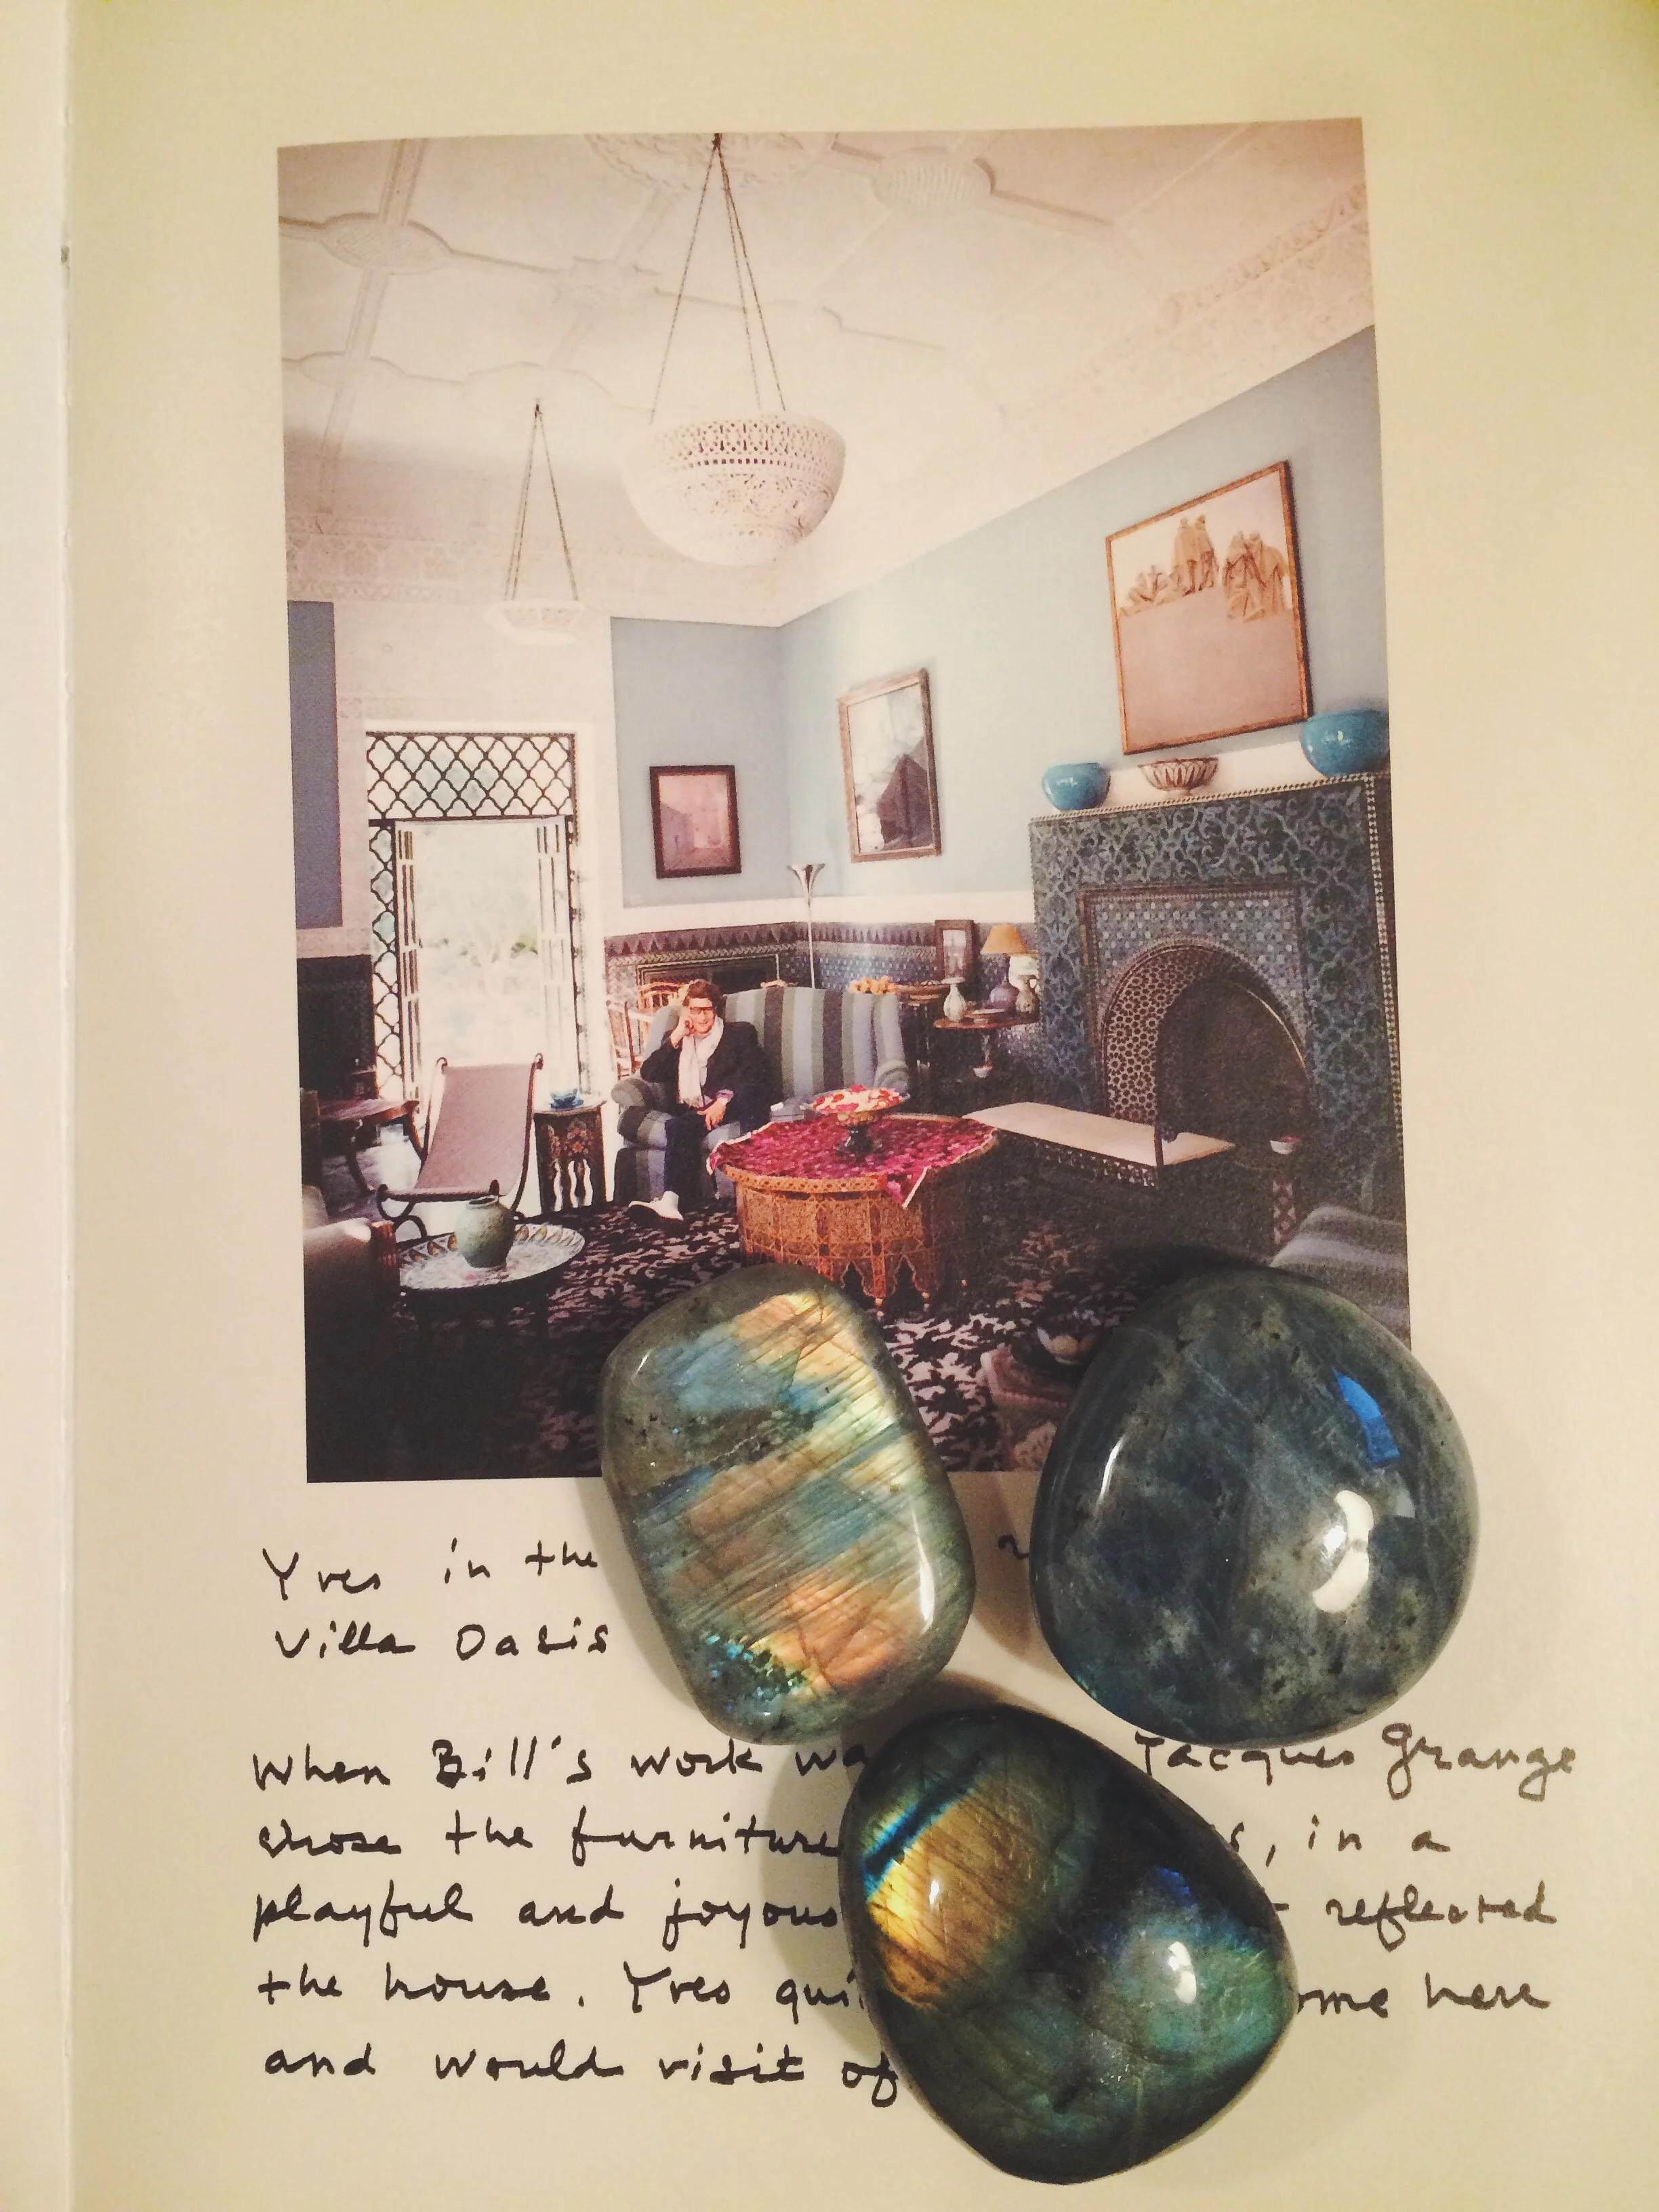 Yves in the
Villa Oasis
When Bill's work Jacques Grange
chose the furniture , in a
playful and joyous reflected
the house. Yves here
and would visit